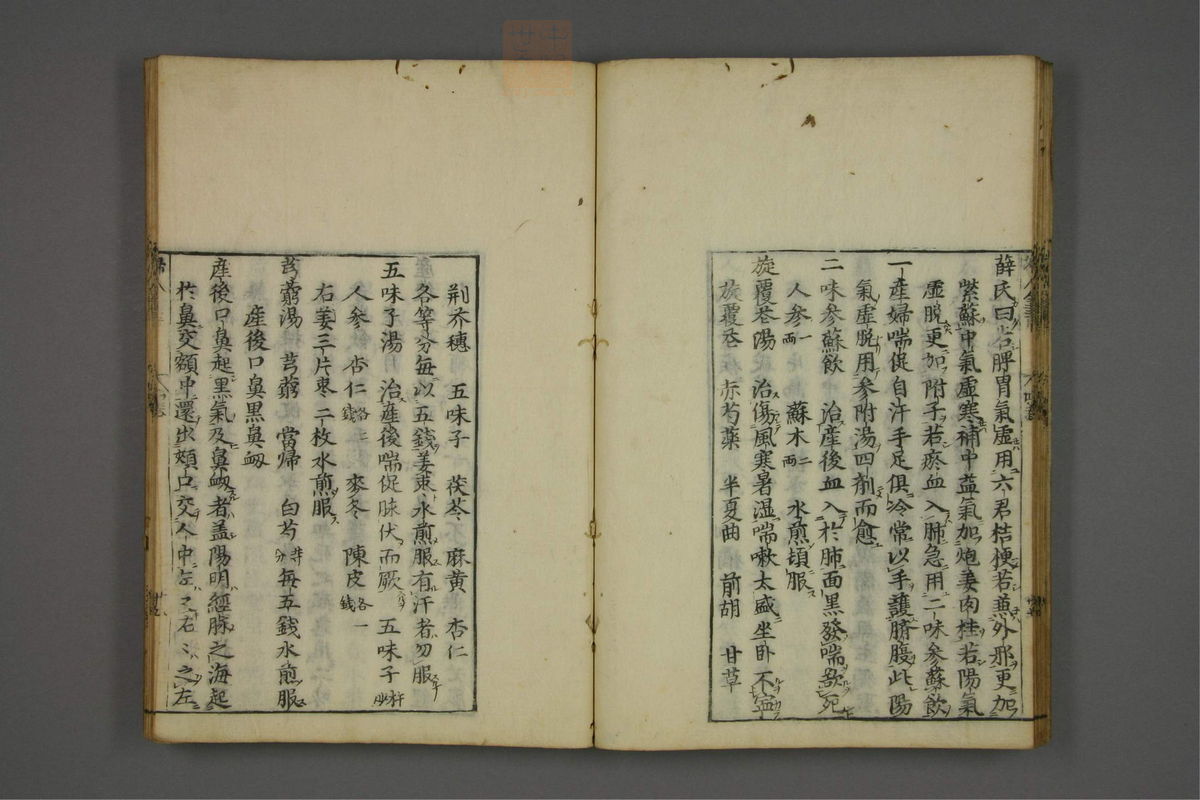 薛氏曰若脾胃氣虚用六君桔梗若兼外邪更加
紫蘇中氣虚寒補中益氣加炮姜肉桂若陽氣
虚脱更加附子若瘀血入肺急用二味参蘇飲
一産婦喘促自汗手足俱冷常以手護臍腹此陽
氣虚脱用参附湯四剤而愈
二味参蘇飲 治産後血入於肺面黒發喘欲死
人参一両 蘇木二両 水煎頓服
旋覆花湯 治傷風寒暑湿喘嗽太盛坐卧不寧
旋覆花 赤芍薬 半夏曲 前胡 甘草
荆芥穗 五味子 茯苓 麻黄 杏仁
各等分毎以五錢姜枣水煎服有汗者勿服
五味子湯 治産後喘促脉伏而厥 五味子杵炒
人参 杏仁各二錢 麥冬 陳皮各一錢
右姜三片枣二枚水煎服
芎藭湯 芎藭 當帰 白芍等分毎五錢水煎服
産後口鼻黒鼻衂
産後口鼻起黒氣及鼻衂者盖陽明經脉之海起
於鼻交頞中還出頰口交人中左之右右之左